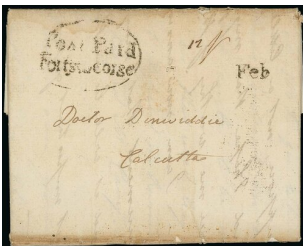 Post Paid
Fort St. George
Feb
Doctor Dinwiddie
Calcutta